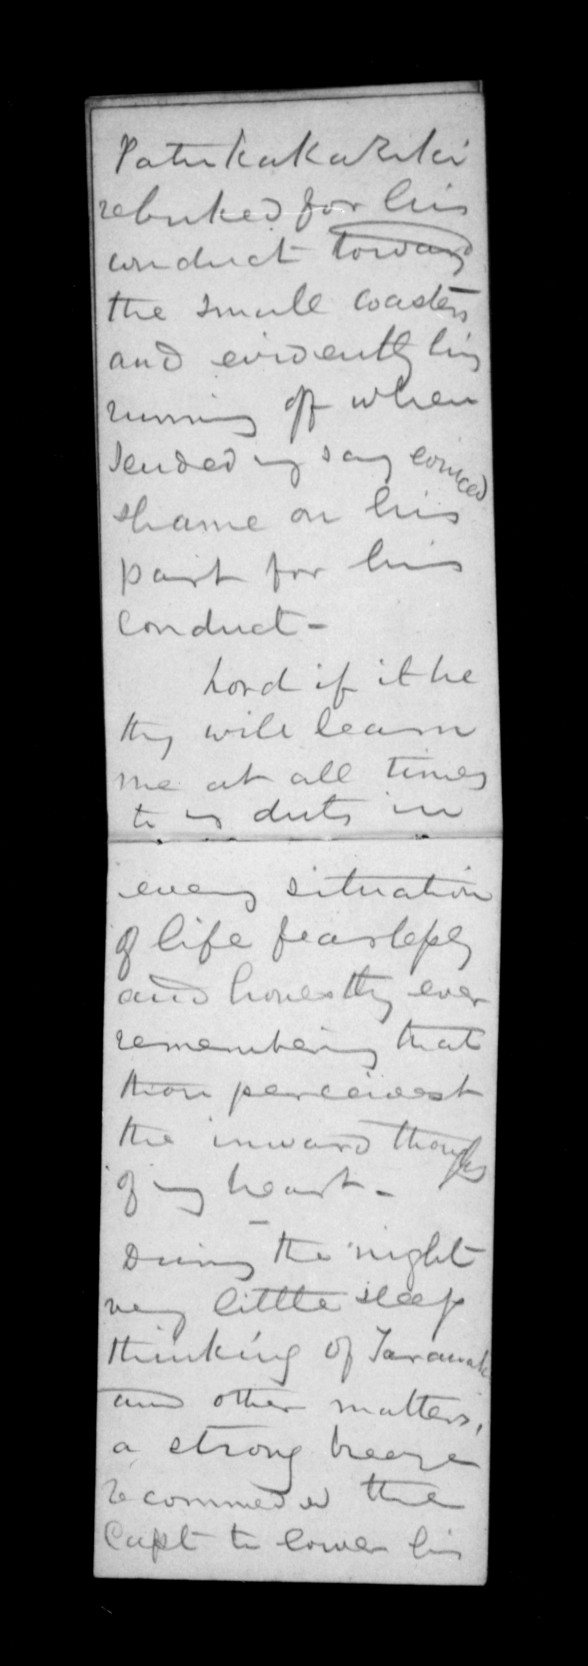 Patukakariki
rebuked for his
conduct toward
the small coasters
and evidently his
running off when
landed my say evinced
shame on his
part for his
conduct -
Lord if it be
thy will learn
me at all times
to my duty in
every situation
of life fearlessly
and honestly ever
remembering that
thou perceivest
the inward thoughts
of my heart. -
During the night
very little sleep
thinking of Taranaki
and other matters,
a strong breeze
recommended the
Capt to lower his